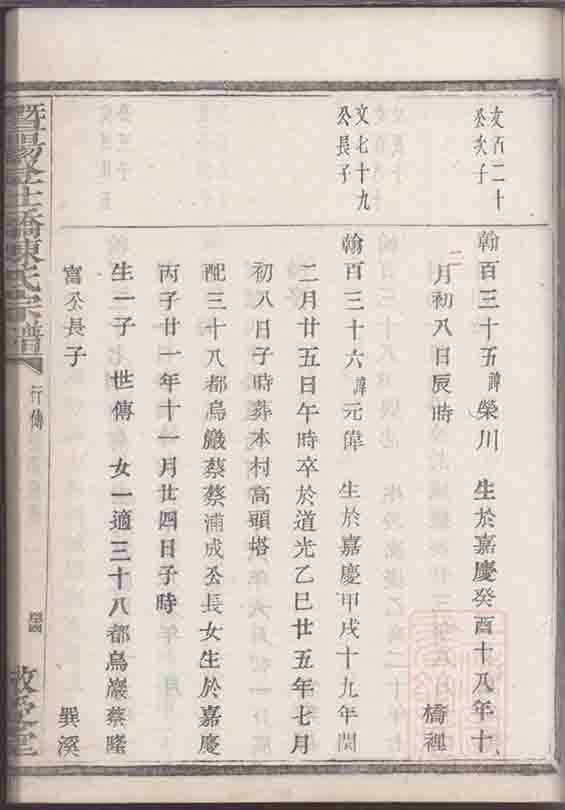 文百二十
公次子
翰百三十五諱榮川 生於嘉慶癸酉十八年十
二月初八日辰時 橋裡
文七十九
公長子
翰百三十六諱元偉 生於嘉慶甲戌十九年閏
二月廿五日午時卒於道光乙巳廿五年七月
初八日子時葬本村高頭塔
配三十八都烏巖蔡蔡浦成公長女生於嘉慶
丙子廿一年十一月廿四日子時
生一子 世傳 女一適三十八都烏巖蔡隆
富公長子 巽溪
暨陽公社橋陳氏宗譜
行傳
敬愛堂